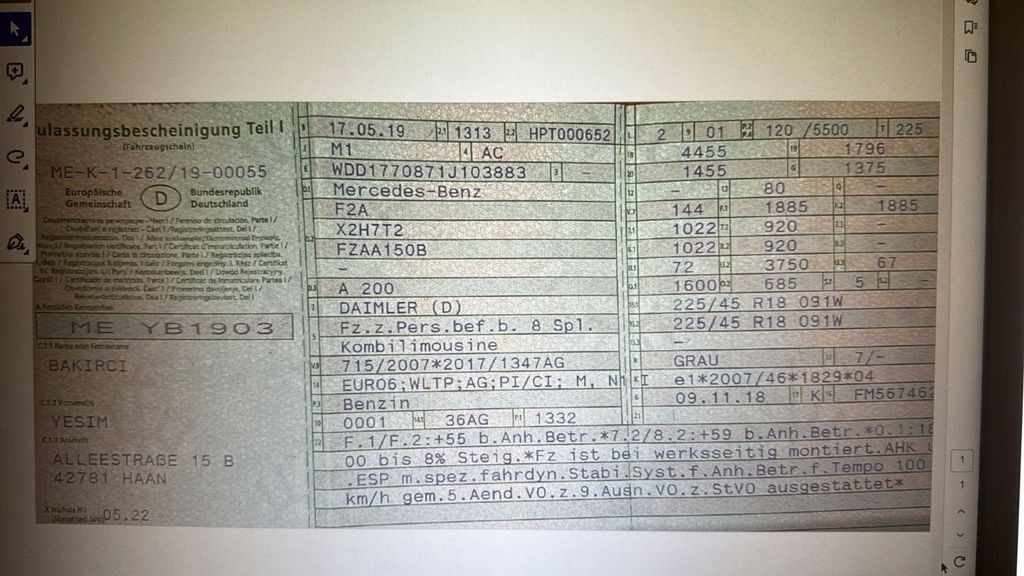 ulassungsbescheinigung Teil I
(Fahrzeugschein)
ME-K-1-262/19-00055
Europäische Gemeinschaft
D
Bundesrepublik Deutschland
A Amtliches Kennzeichen
ME YB1903
C.1.1 Name oder Firmenname
BAKIRCI
C.1.2 Vorname(n)
YESIM
C.1.3 Anschrift
ALLEESTRAßE 15 B
42781 HAAN
X Nächste HU
(Monat und Jahr) 05.22
B 17.05.19 2.1 1313 2.2 HPT000652
J M1 4 AC
E WDD1770871J103883 3 –
D.1 Mercedes-Benz
F2A
D.2 X2H7T2
FZAA150B
–
D.3 A 200
2 DAIMLER (D)
5 Fz.z.Pers.bef.b. 8 Spl.
Kombilimousine
V.9 715/2007*2017/1347AG
14 EURO6;WLTP;AG;PI/CI; M, N1 I
P.3 Benzin
10 0001 14.1 36AG P.1 1332
L 2 9 01 P.2 P.4 120 /5500 T 225
18 4455 19 1796
20 1455 G 1375
12 – 13 80 Q –
V.7 144 F.1 1885 F.2 1885
7.1 1022 7.2 920 7.3 –
8.1 1022 8.2 920 8.3 –
U.1 72 U.2 3750 U.3 67
O.1 1600 O.2 685 S.1 5 S.2 –
15.1 225/45 R18 091W
15.2 225/45 R18 091W
15.3 –
R GRAU 11 7/–
K e1*2007/46*1829*04
6 09.11.18 17 K 16 FM567462
21
22 F.1/F.2:+55 b.Anh.Betr.*7.2/8.2:+59 b.Anh.Betr.*O.1:18
00 bis 8% Steig.*Fz ist bei werksseitig montiert.AHK
.ESP m.spez.fahrdyn.Stabi.Syst.f.Anh.Betr.f.Tempo 100
km/h gem.5.Aend.VO.z.9.Ausn.VO.z.StVO ausgestattet*
1
1